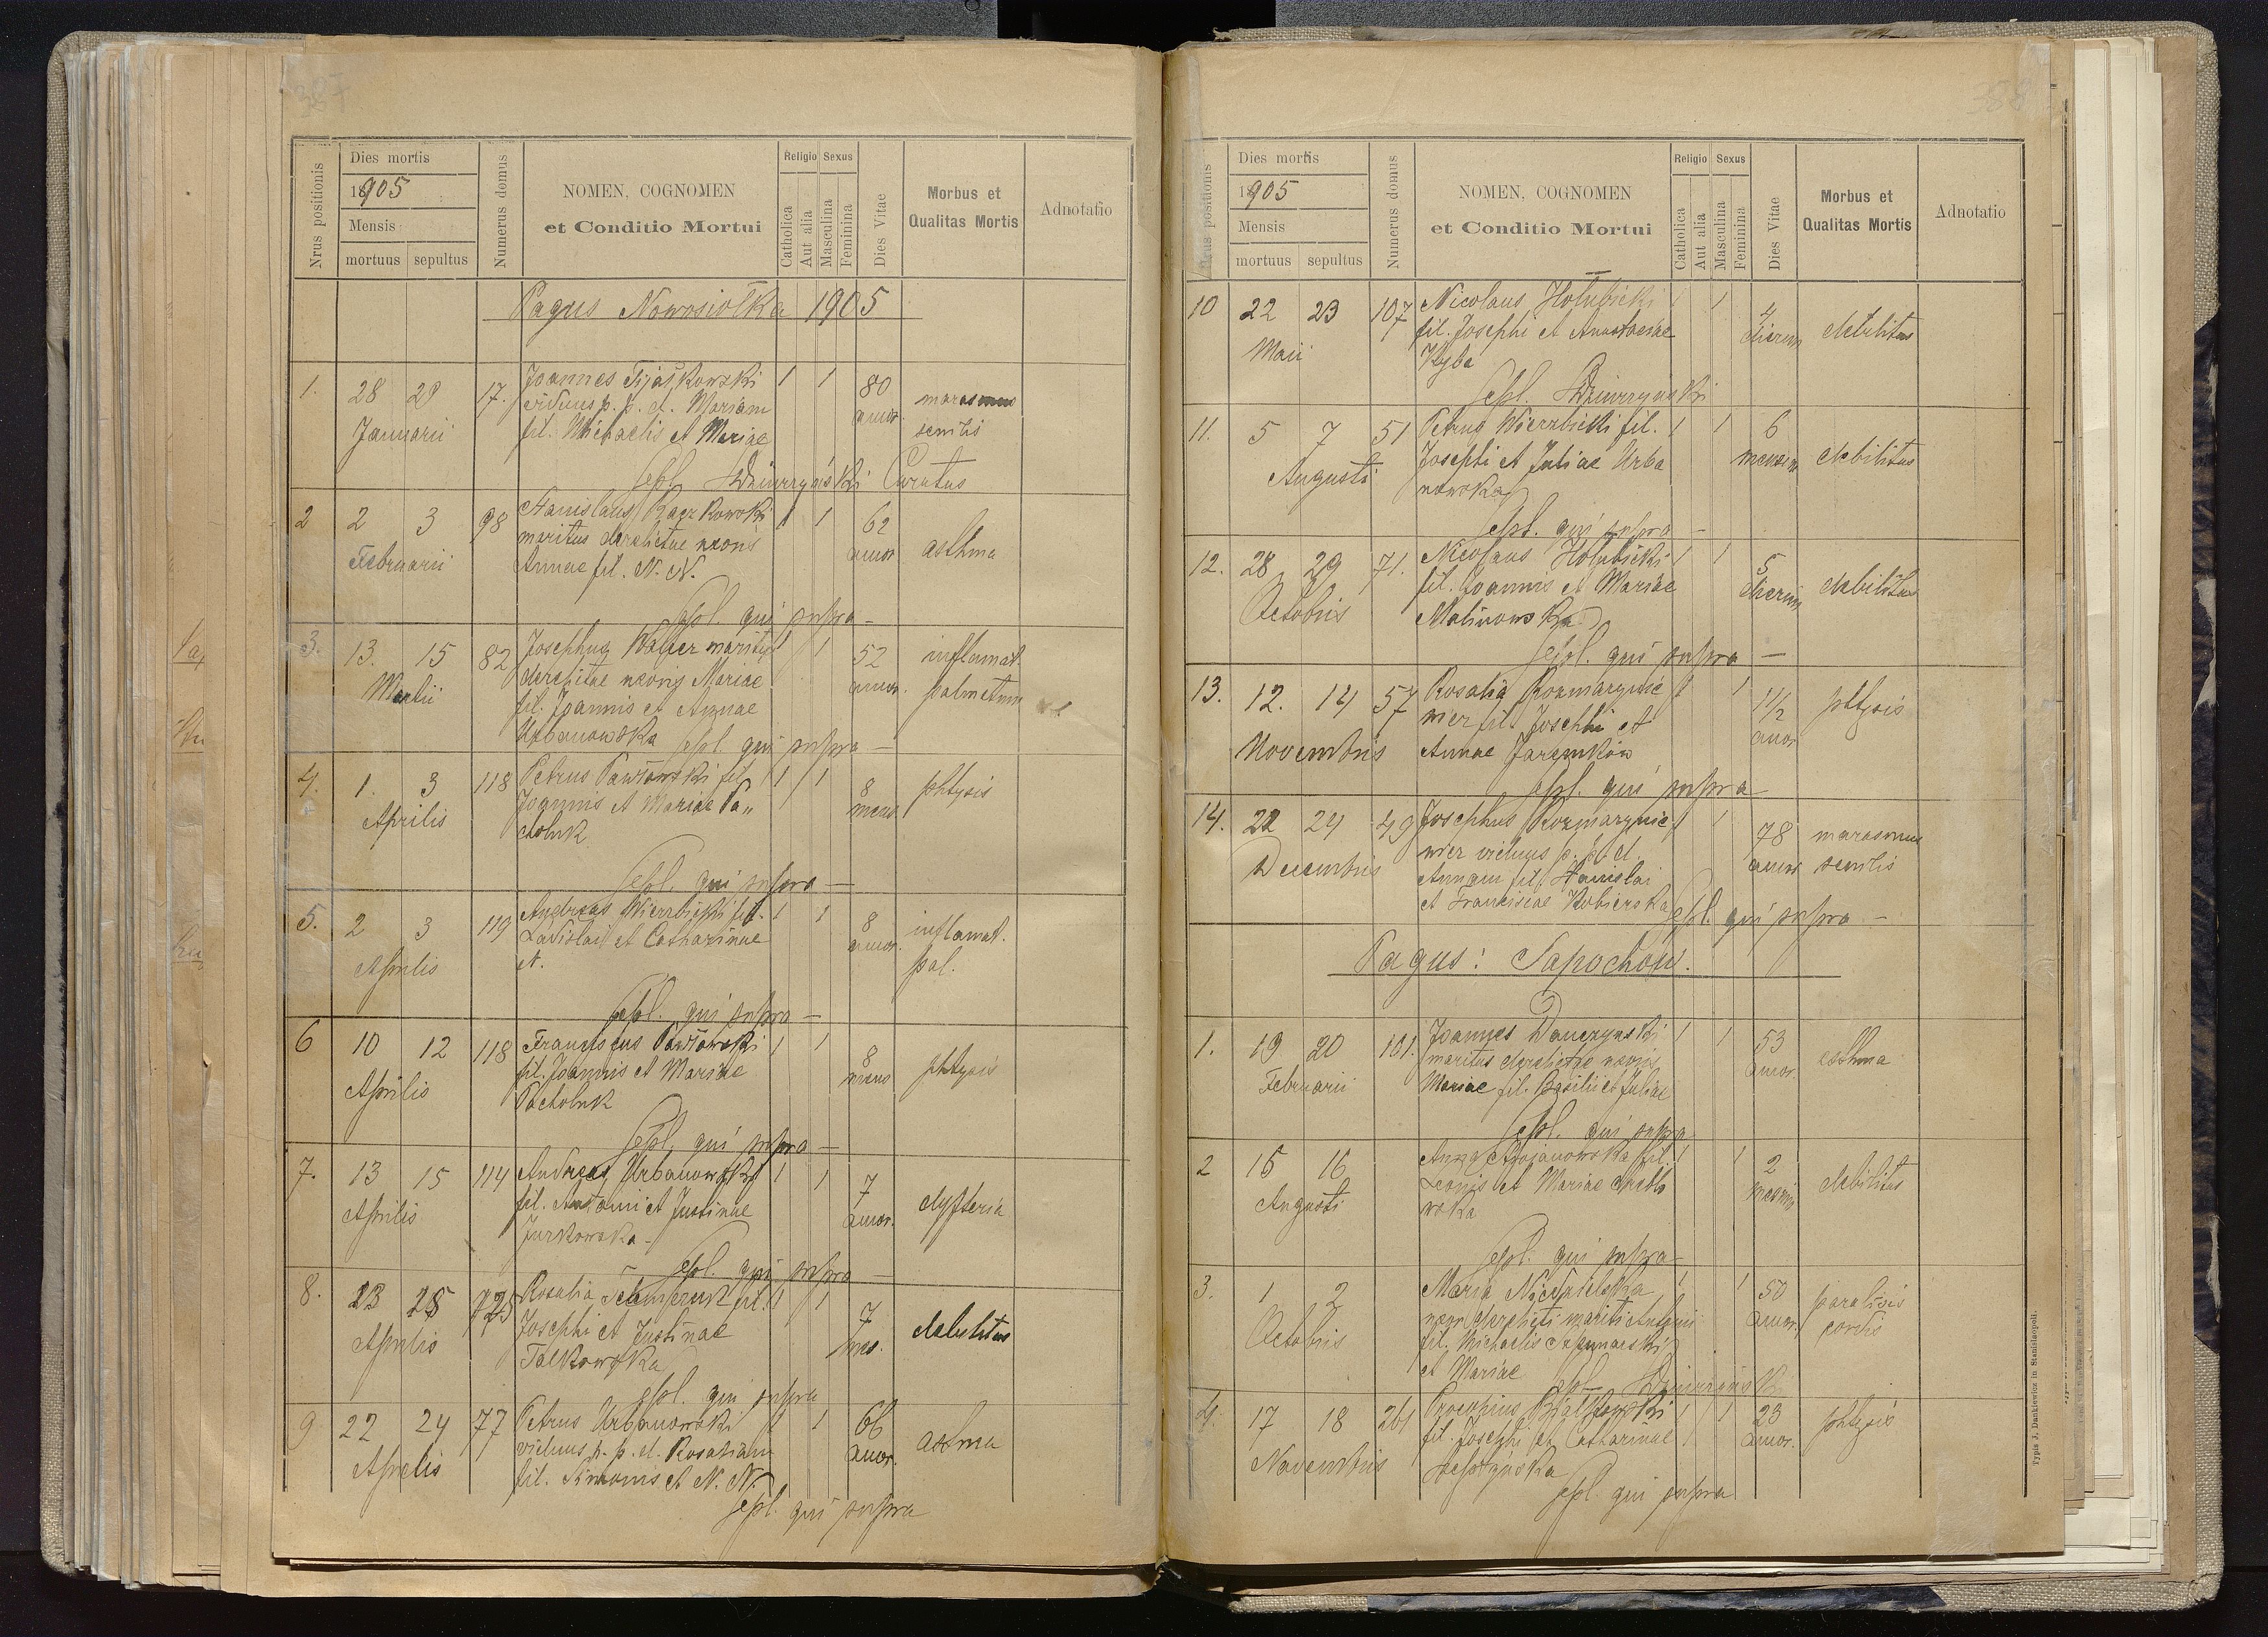 387
Nrus positionis
Dies mortis
1905
Mensis
mortuus sepultus
Numerus domus
NOMEN, COGNOMEN
et Conditio Mortui
Religio Sexus
Catholica
Aut alia
Masculina
Feminina
Dies Vitae
Morbus et
Qualitas Mortis
Adnotatio
Pagus Nowosiołka 1905
1. 28 29 17. Joannes 1 1 80 marasmus
Januarii viduus p. p. d. Mariam annor. senilis
fil. Michaelis et Mariae
sepl. Dziurzyński Curatus
2 2 3 98 Stanislaus Kaczkowski 1 1 62 asthma
Februarii maritus derelictae uxoris annor
Annae fil. N. N.
sepl. qui supra —
3. 13. 15 82 Josephus Walter maritus 1 1 52 inflamat.
Martii derelictae uxoris Mariae annor. pulmonum
fil. Joannis et Annae
Urbanowska sepl. qui supra —
4. 1. 3 118 Petrus Pawłowski fil. 1 1 8 phtysis
Aprilis Joannis et Mariae Pa„ mens.
choluk
sepl. qui supra —
5. 2 3 119 Andreas Wierzbicki fil. 1 1 8 inflamat.
Aprilis Ladislai et Catharinae annor. pul.
N.
sepl. qui supra —
6 10 12 118 Franciscus Pawłowski 1 1 8 phtysis
Aprilis fil. Joannis et Mariae mens
Pacholuk
sepl. qui supra —
7. 13 15 114 Andreas Urbanowski 1 1 7 dyfteria
Aprilis fil. Antonii et Justinae annor.
Jurkowska
sepl. qui supra —
8. 23 25 Rosalia fil. 1 1 7 debilitas
Aprilis Josephi et Justinae mes.
Falkowska
sepl. qui supra
9 22 24 77 Petrus Urbanowski 1 1 66 astma
Aprilis viduus p. p. d. Rosaliam annor.
fil. Simonis et N. N.
sepl. qui supra
388
Nrus positionis
Dies mortis
1905
Mensis
mortuus sepultus
Numerus domus
NOMEN, COGNOMEN
et Conditio Mortui
Religio Sexus
Catholica
Aut alia
Masculina
Feminina
Dies Vitae
Morbus et
Qualitas Mortis
Adnotatio
10 22 23 107 Nicolaus Hołubicki 1 1 4 debilitas
Maii fil. Josephi et Anastasiae dierum
Kyba
sepl. Dziurzyński
11. 5 7 51 Petrus Wierzbicki fil. 1 1 6 debilitas
Augusti Josephi et Juliae Urba mensium
nowska
sepl. qui supra —
12. 28 29 71. Nicolaus Hołubicki 1 1 5 debilitas
Octobris fil. Joannis et Mariae dierum
Malinowska
sepl. qui supra —
13. 12. 14 57 Rosalia Rozmarynie 1 1 1 1/2 phtysis
Novembris wicz fil. Josephi et annor
Annae Jaremków
sepl. qui supra —
14. 22 24 49 Josephus Rozmarynie 1 1 78 marasmus
Decembris wicz viduus p. p. d. annor senilis
Annam fil. Stanislai
et Franciscae Kobierska
sepl. qui supra —
Pagus: Sapochow.
1. 19 20 101. Joannes Danczynski 1 1 53 asthma
Februarii maritus derelictae uxoris annor.
Mariae fil. Basilii et Juliae
sepl. qui supra
2 15 16 Anna Stojanowska fil. 1 1 2 debilitas
Augusti Leonis et Mariae mensium
wska
sepl. qui supra —
3. 1 2 Maria 1 1 50 paralisis
Octobris uxor derelicti mariti Antonii annor. cordis
fil. Michaelis
et Mariae sepl. Dziurzyński
4. 17 18 261 Procopius 1 1 23 phtysis
Novembris fil. Josephi et Catharinae annor.
sepl. qui supra
Typis J. Dankiewicz in Stanislaopoli.